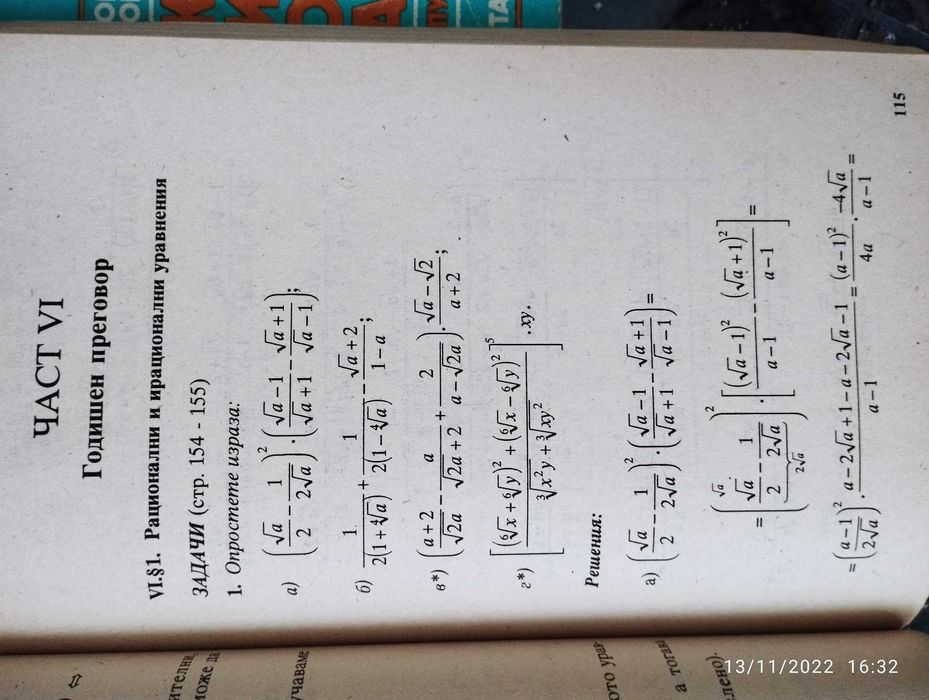 ЧАСТ VI
Годишен преговор
VI.§1. Рационални и ирационални уравнения
ЗАДАЧИ (стр. 154 - 155)
1. Опростете израза:
а) (√a/2 − 1/(2√a))² . ((√a−1)/(√a+1) − (√a+1)/(√a−1));
б) 1/(2(1+⁴√a)) + 1/(2(1−⁴√a)) − (√a+2)/(1−a);
в*) ((a+2)/√2a − a/(√2a+2) + 2/(a−√2a)) . (√a−√2)/(a+2);
г*) [((⁶√x+⁶√y)² + (⁶√x−⁶√y)²)/(³√x²y + ³√xy²)]⁵ .xy.
Решения:
а) (√a/2 − 1/(2√a))² . ((√a−1)/(√a+1) − (√a+1)/(√a−1)) =
= (√a/2 − 1/(2√a))² . [(√a−1)²/(a−1) − (√a+1)²/(a−1)] =
√a
2√a
= ((a−1)/(2√a))² . (a−2√a+1−a−2√a−1)/(a−1) = (a−1)²/4a . −4√a/(a−1) =
115
⇔
ителни,
може да
учаваме
ото урав-
а тогава
лено).
13/11/2022 16:32